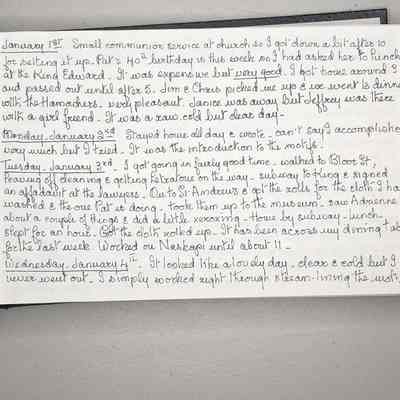 January 1st. Small communion service at church so I got down a bit after 10
for setting it up. Pat's 40th birthday is this week so I'd asked her to lunch
at the King Edward. It was expensive but very good. I got home around 3
and passed out until after 5. Jim & Chris picked me up & we went to dinner
with the Hamachers. very pleasant. Janice was away but Jeffrey was there
with a girl friend. It was a raw cold but clear day -
Monday, January 2nd Stayed home all day & wrote - can't say I accomplished
very much but I tried. It was the introduction to the motifs.
Tuesday, January 3rd. I got going in fairly good time - walked to Bloor St,
leaving off cleaning & getting Petrafoue on the way - subway to King & signed
an affadavit at the lawyers. Out to St Andrews & got the rolls for the cloth I had
washed & the one Pat is doing - took them up to the museum. saw Adrienne
about a couple of things & did a little xeroxing - Home by subway - lunch,
slept for an hour. Got the cloth rolled up. It has been across my dining tab
for the last week. Worked on Naskapi until about 11 -
Wednesday, January 4th. It looked like a lovely day - clear & cold but I
never went out. I simply worked right through stream-lining the moti